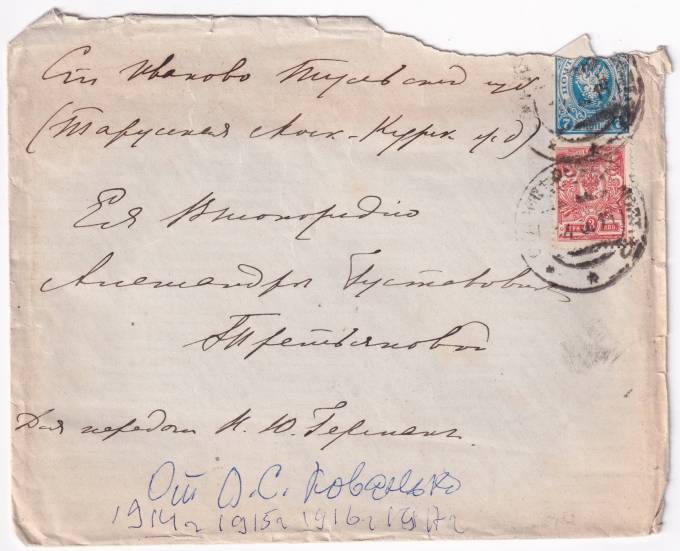 Ст. Иваково Тульской губ.
(Тарусская Моск.-Курск. ж/д)
Ея Высокородію
Александрѣ Густавовнѣ
Третьяковой
Для передачи Н. Ю. Германъ
От О. С. Ковалько
1914г 1915г 1916г 1917г
7
3